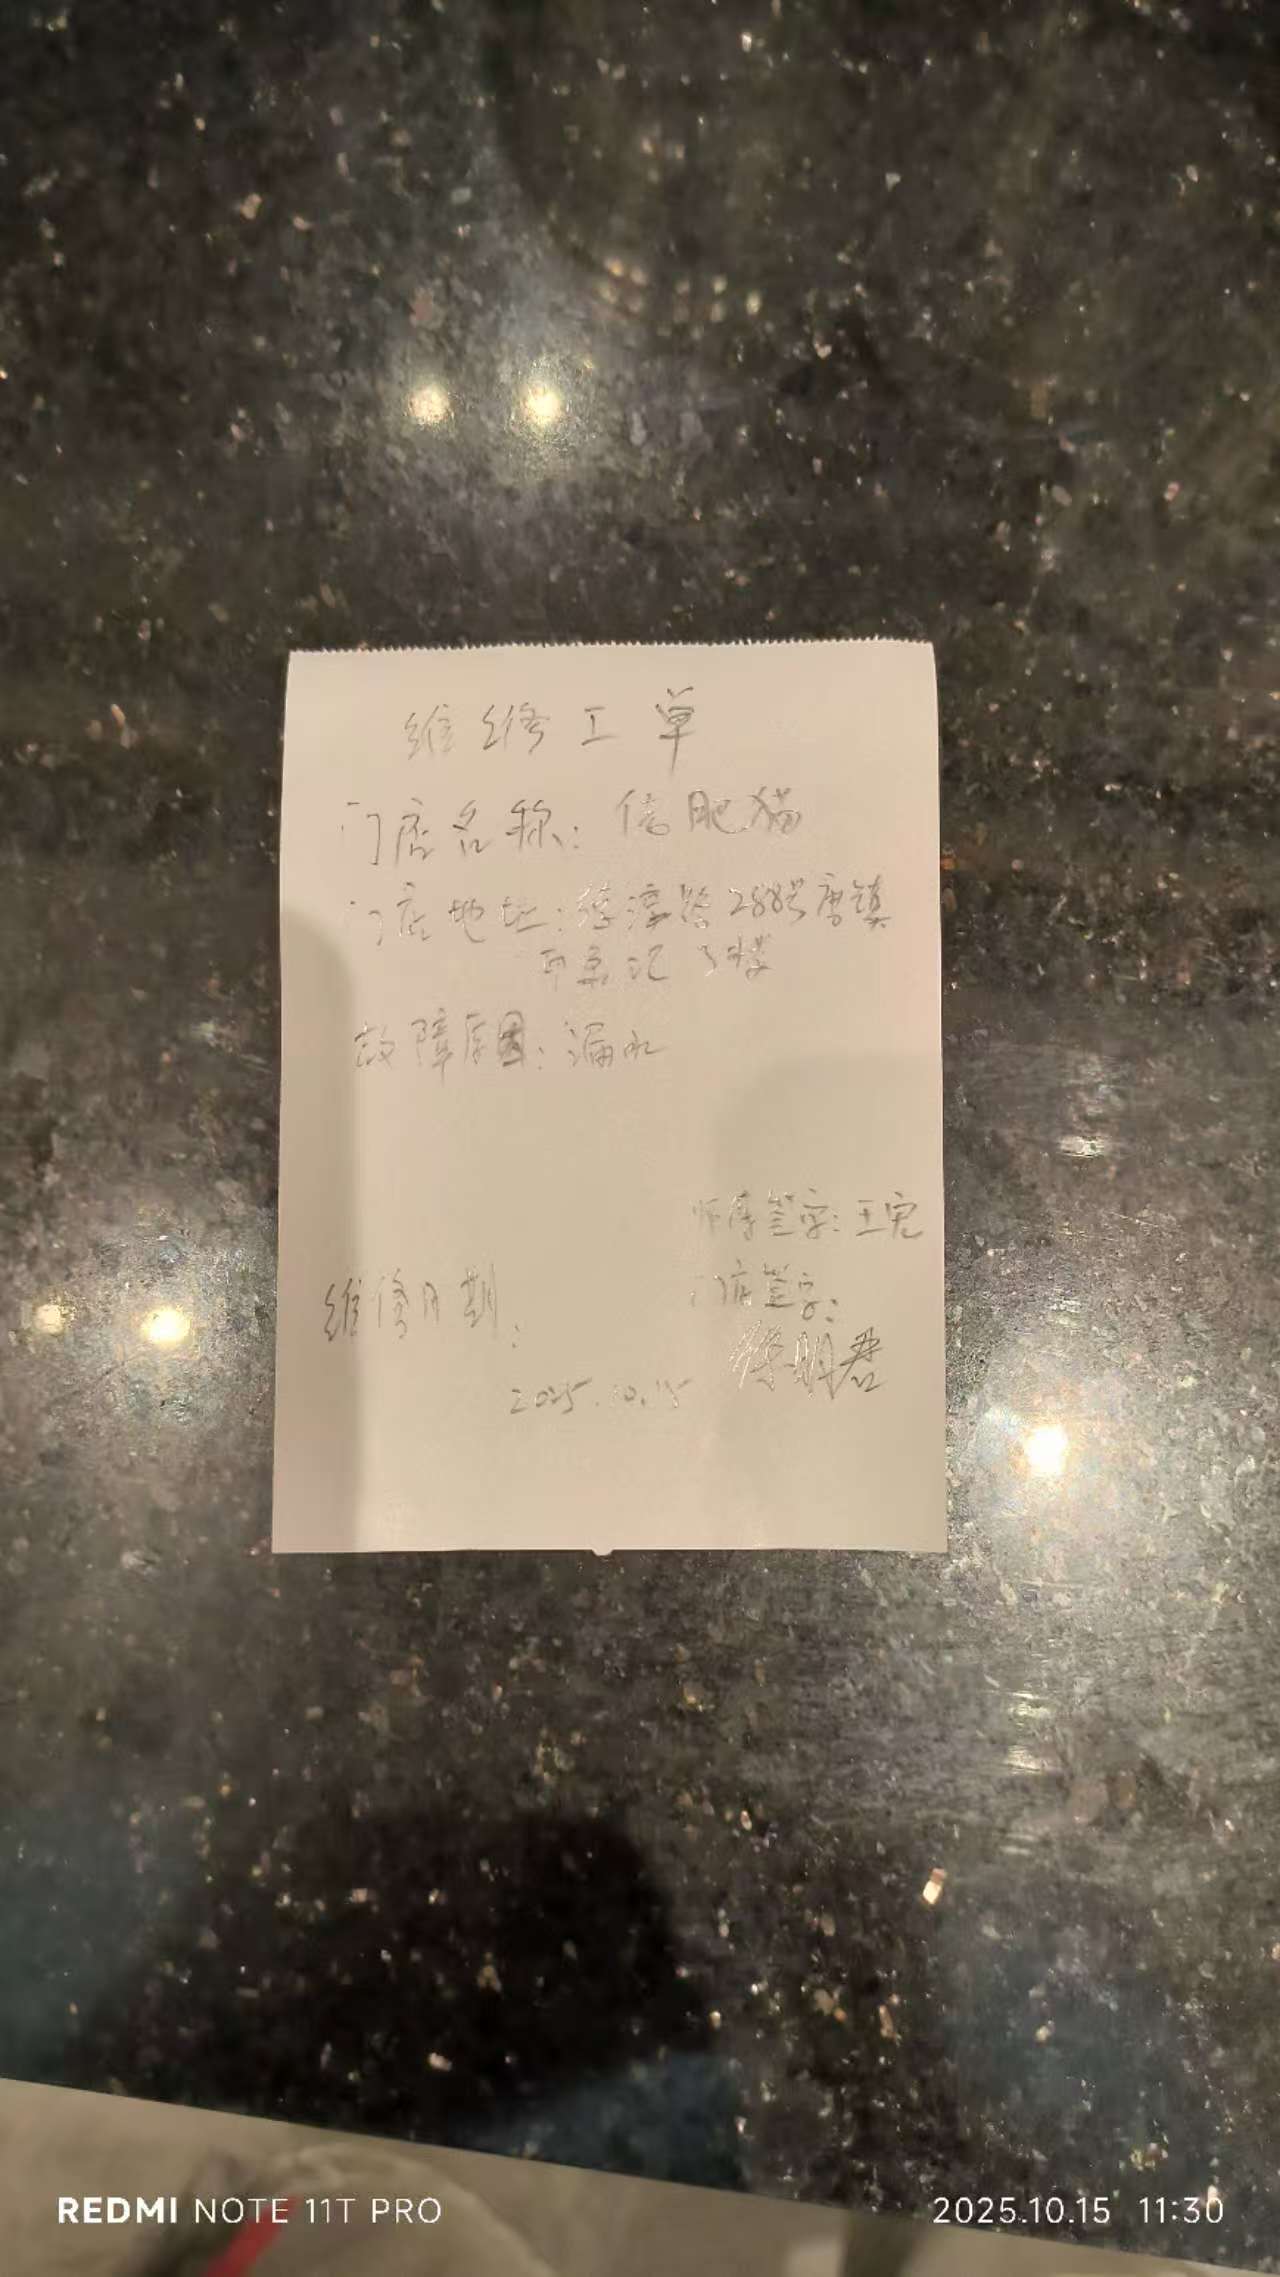 维修工单
门店名称：信肥猫
门店地址：绿淳路288号唐镇
记 3楼
故障原因：漏水
师傅签字：王宪
门店签字：
明君
维修日期：
2025.10.15
REDMI NOTE 11T PRO
2025.10.15 11:30